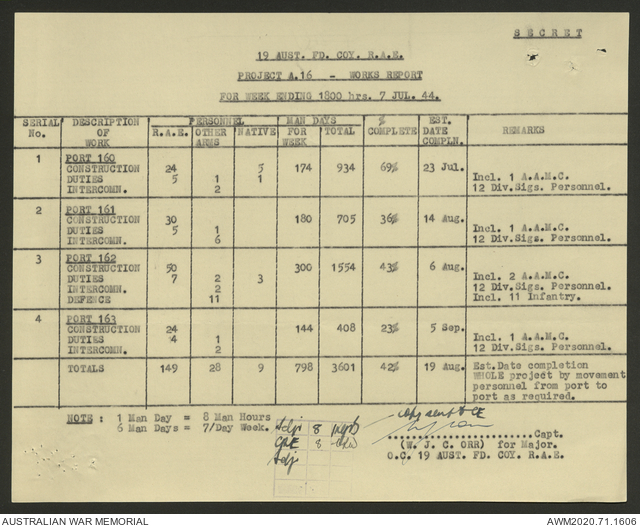 S E C R E T
19 AUST. FD. COY. R.A.E.
PROJECT A.16 - WORKS REPORT
FOR WEEK ENDING 1800 hrs. 7 JUL. 44.
SERIAL No. DESCRIPTION OF WORK PERSONNEL R.A.E. OTHER ARMS NATIVE MAN DAYS FOR WEEK TOTAL % COMPLETE EST. DATE COMPLN. REMARKS
1 PORT 160
CONSTRUCTION 24 5 174 934 69% 23 Jul.
DUTIES 5 1 1 Incl. 1 A.A.M.C.
INTERCOMN. 2 12 Div.Sigs. Personnel.
2 PORT 161
CONSTRUCTION 30 180 705 36% 14 Aug.
DUTIES 5 1 Incl. 1 A.A.M.C.
INTERCOMN. 6 12 Div.Sigs. Personnel.
3 PORT 162
CONSTRUCTION 50 300 1554 43% 6 Aug.
DUTIES 7 2 3 Incl. 2 A.A.M.C.
INTERCOMN. 2 12 Div.Sigs. Personnel.
DEFENCE 11 Incl. 11 Infantry.
4 PORT 163
CONSTRUCTION 24 144 408 23% 5 Sep.
DUTIES 4 1 Incl. 1 A.A.M.C.
INTERCOMN. 2 12 Div.Sigs. Personnel.
TOTALS 149 28 9 798 3601 42% 19 Aug. Est.Date completion
WHOLE project by movement
personnel from port to
port as required.
NOTE : 1 Man Day = 8 Man Hours
6 Man Days = 7/Day Week.
Adjt 8
CRE 8
Adjt
copy sent to CE
....................Capt.
(W. J. C. ORR) for Major.
O.C. 19 AUST. FD. COY. R.A.E.
AUSTRALIAN WAR MEMORIAL
AWM2020.71.1606